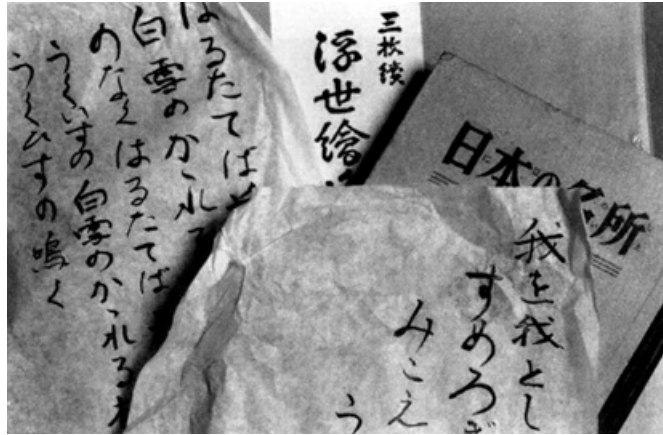 はるたてば
白雪のかゝれ
のなくはるたてば
うくいすの白雪のかゝれる
うくひすの鳴く
三枚續
浮世繪
日本の名所
我を我とし
すめろぎ
みこえ
う